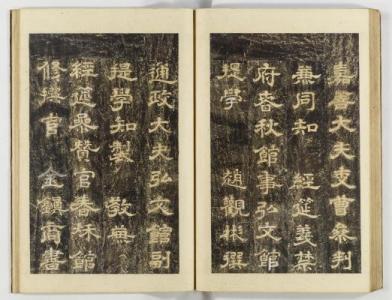 嘉善大夫吏曹參判
兼同知 經筵義禁
府春秋館事弘文館
提學 趙觀彬撰
通政大夫弘文館副
提學知製 敎兼
經筵參贊官春秋館
修撰官 金鎭商書